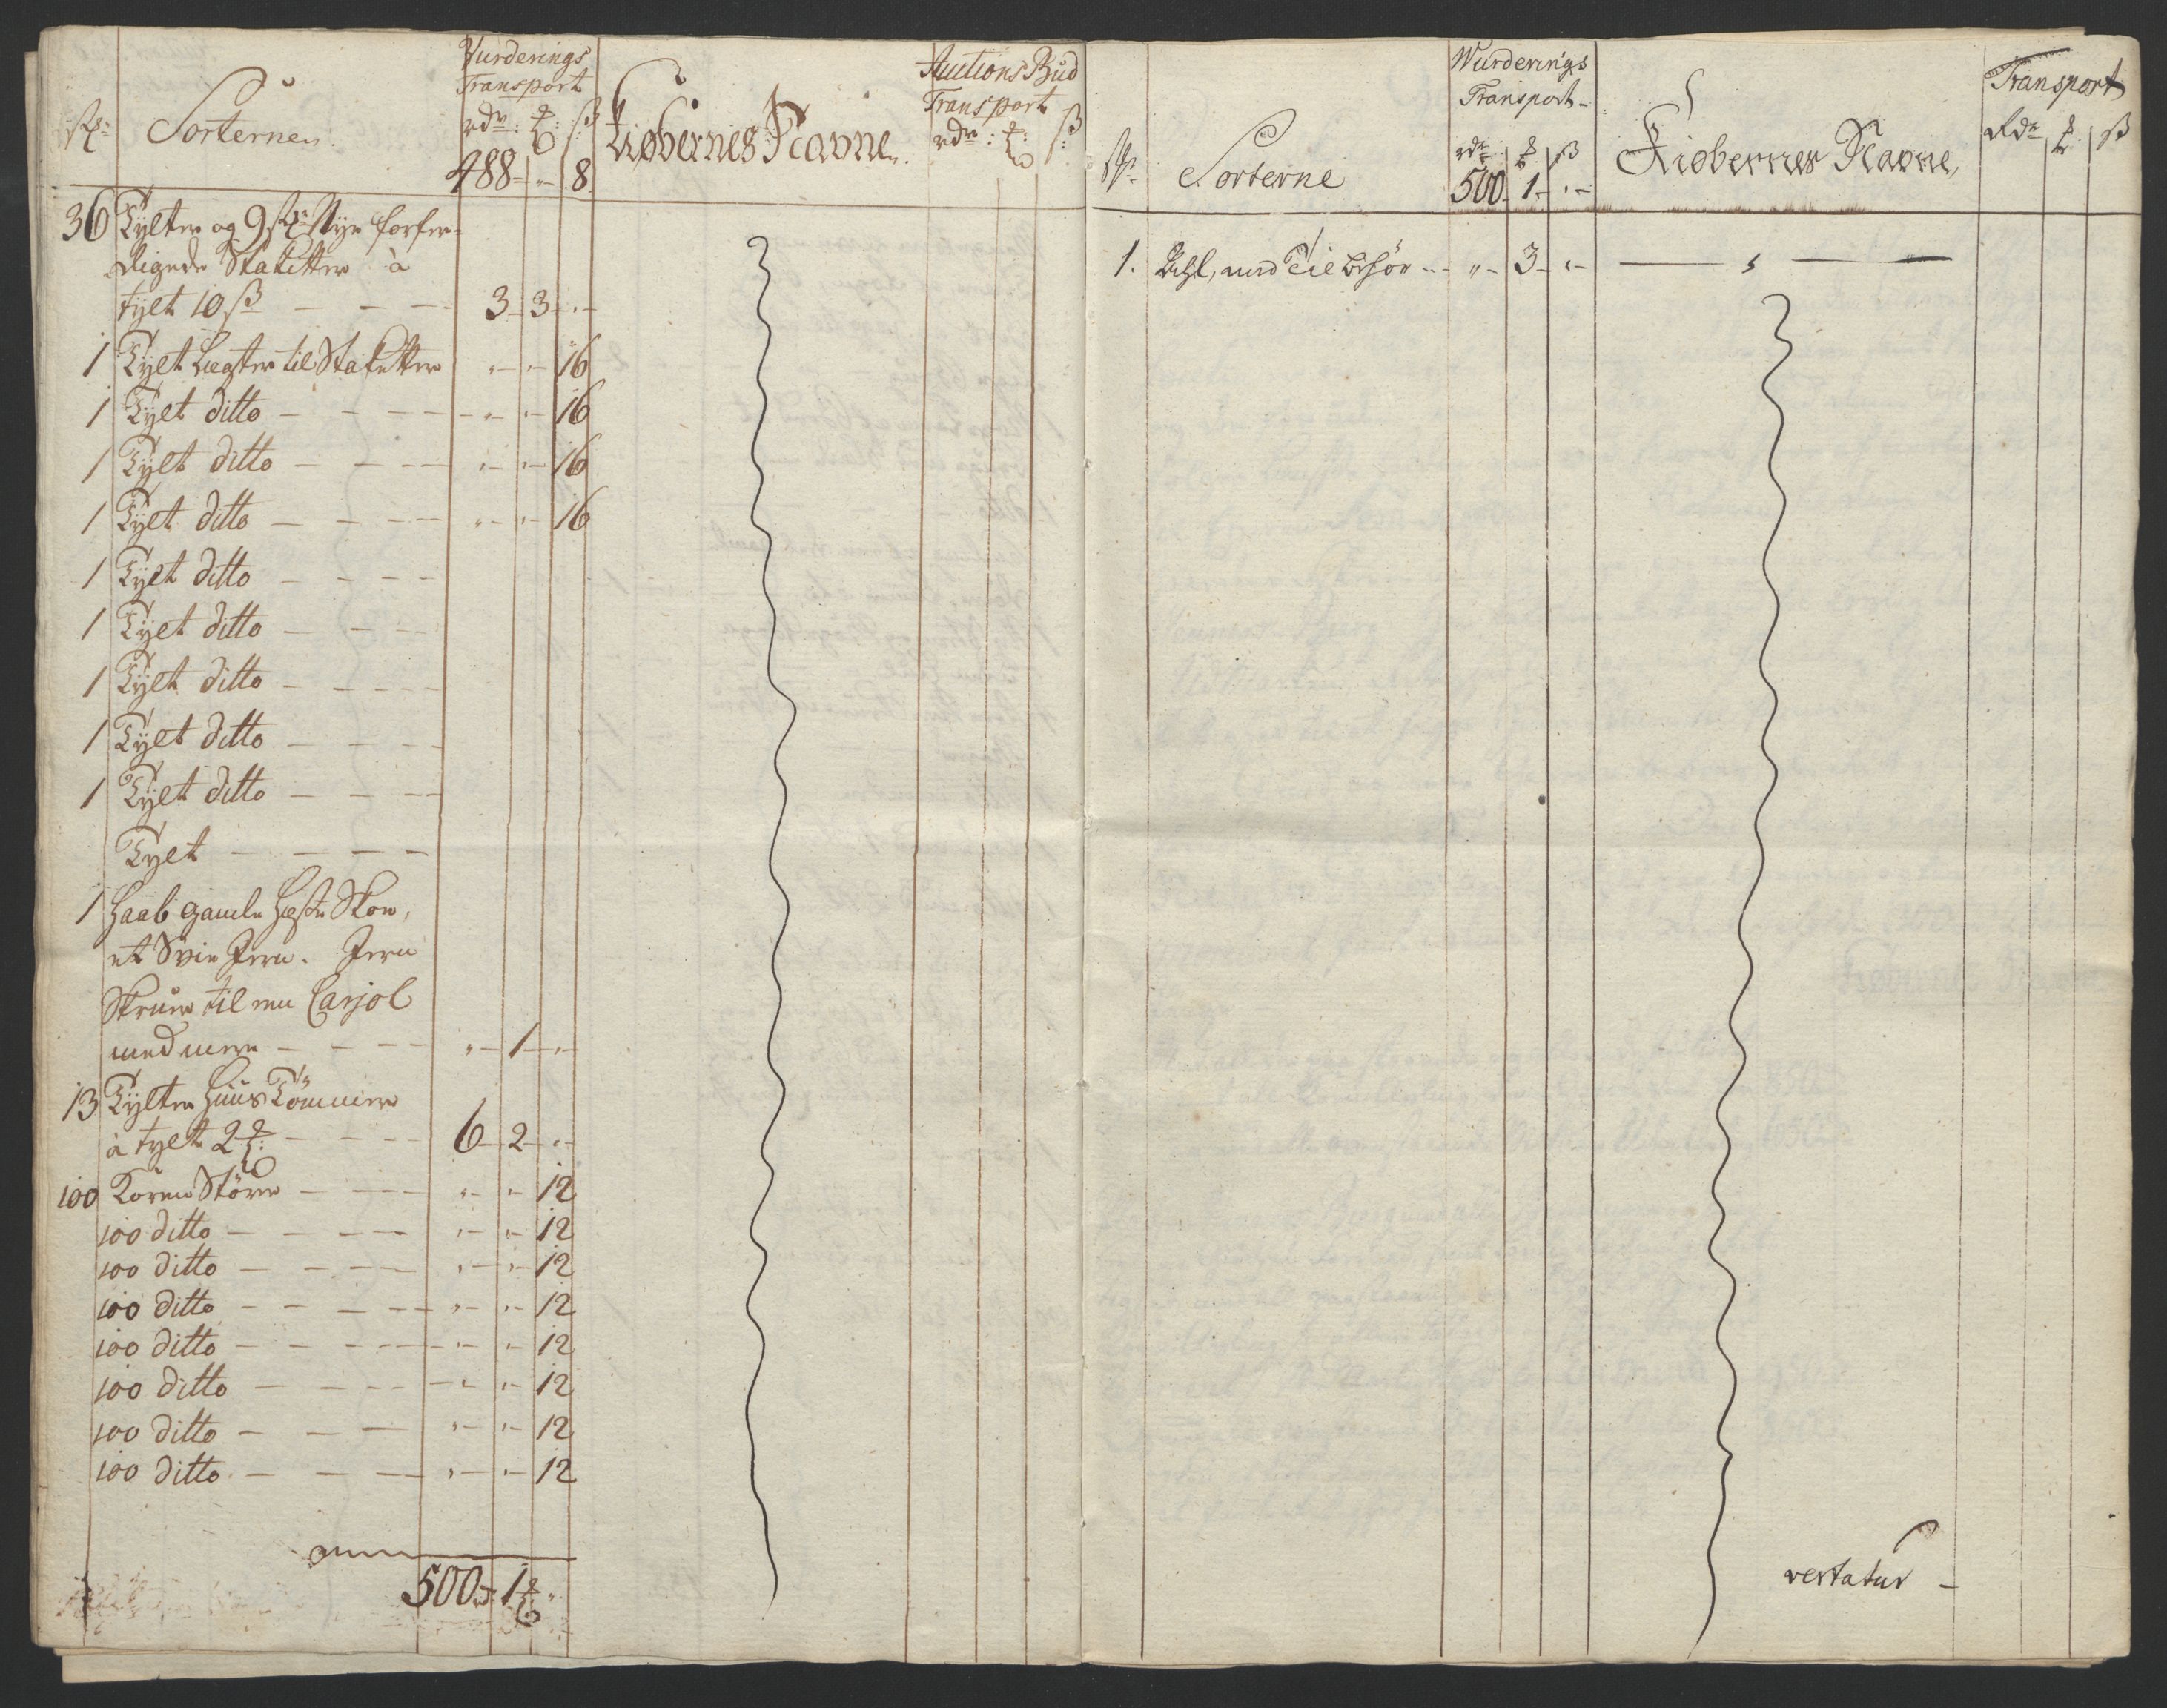 Stk:
Sorterne.
Vurderings
Transport
rdr: ℔: ß
488 - " - 8
Kiøbernes Navne.
Auctions Bud
Transport
rdr: ℔: ß
36 Tylter og 9 stk: Nye forfær-
digede Staketter à
tylt 10 ß — — — 3 - 3 - " -
1 Tylt Lægter til Staketter " - " - 16
1 Tylt ditto — — — " - " - 16
1 Tylt ditto — — — " - " - 16
1 Tylt ditto — — — " - " - 16
1 Tylt ditto — — —
1 Tylt ditto — — —
1 Tylt ditto — — —
1 Tylt ditto — — —
1 Tylt ditto — — —
Tylt — — — —
1 Haab gamle Heste Skoe,
et Svie Jern. Jern
Skruer til een Carjol
med mere — — — " - 1 - " -
13 Tylter Huus Tömmer
à tylt 2 ℔: — — — 6 - 2 - " -
100 Koren Störe — — " - " - 12
100 ditto — — — " - " - 12
100 ditto — — — " - " - 12
100 ditto — — — " - " - 12
100 ditto — — — " - " - 12
100 ditto — — — " - " - 12
100 ditto — — — " - " - 12
100 ditto — — — " - " - 12
500 rd 1 ℔ "
Stk:
Sorterne
Wurderings
Transport -
rdr ℔ ß
500 - 1 - " -
Kiøbernes Navne,
Transport
Rdr ℔ ß
1. med Tilbehör -- " - 3 - " -
vertatur -